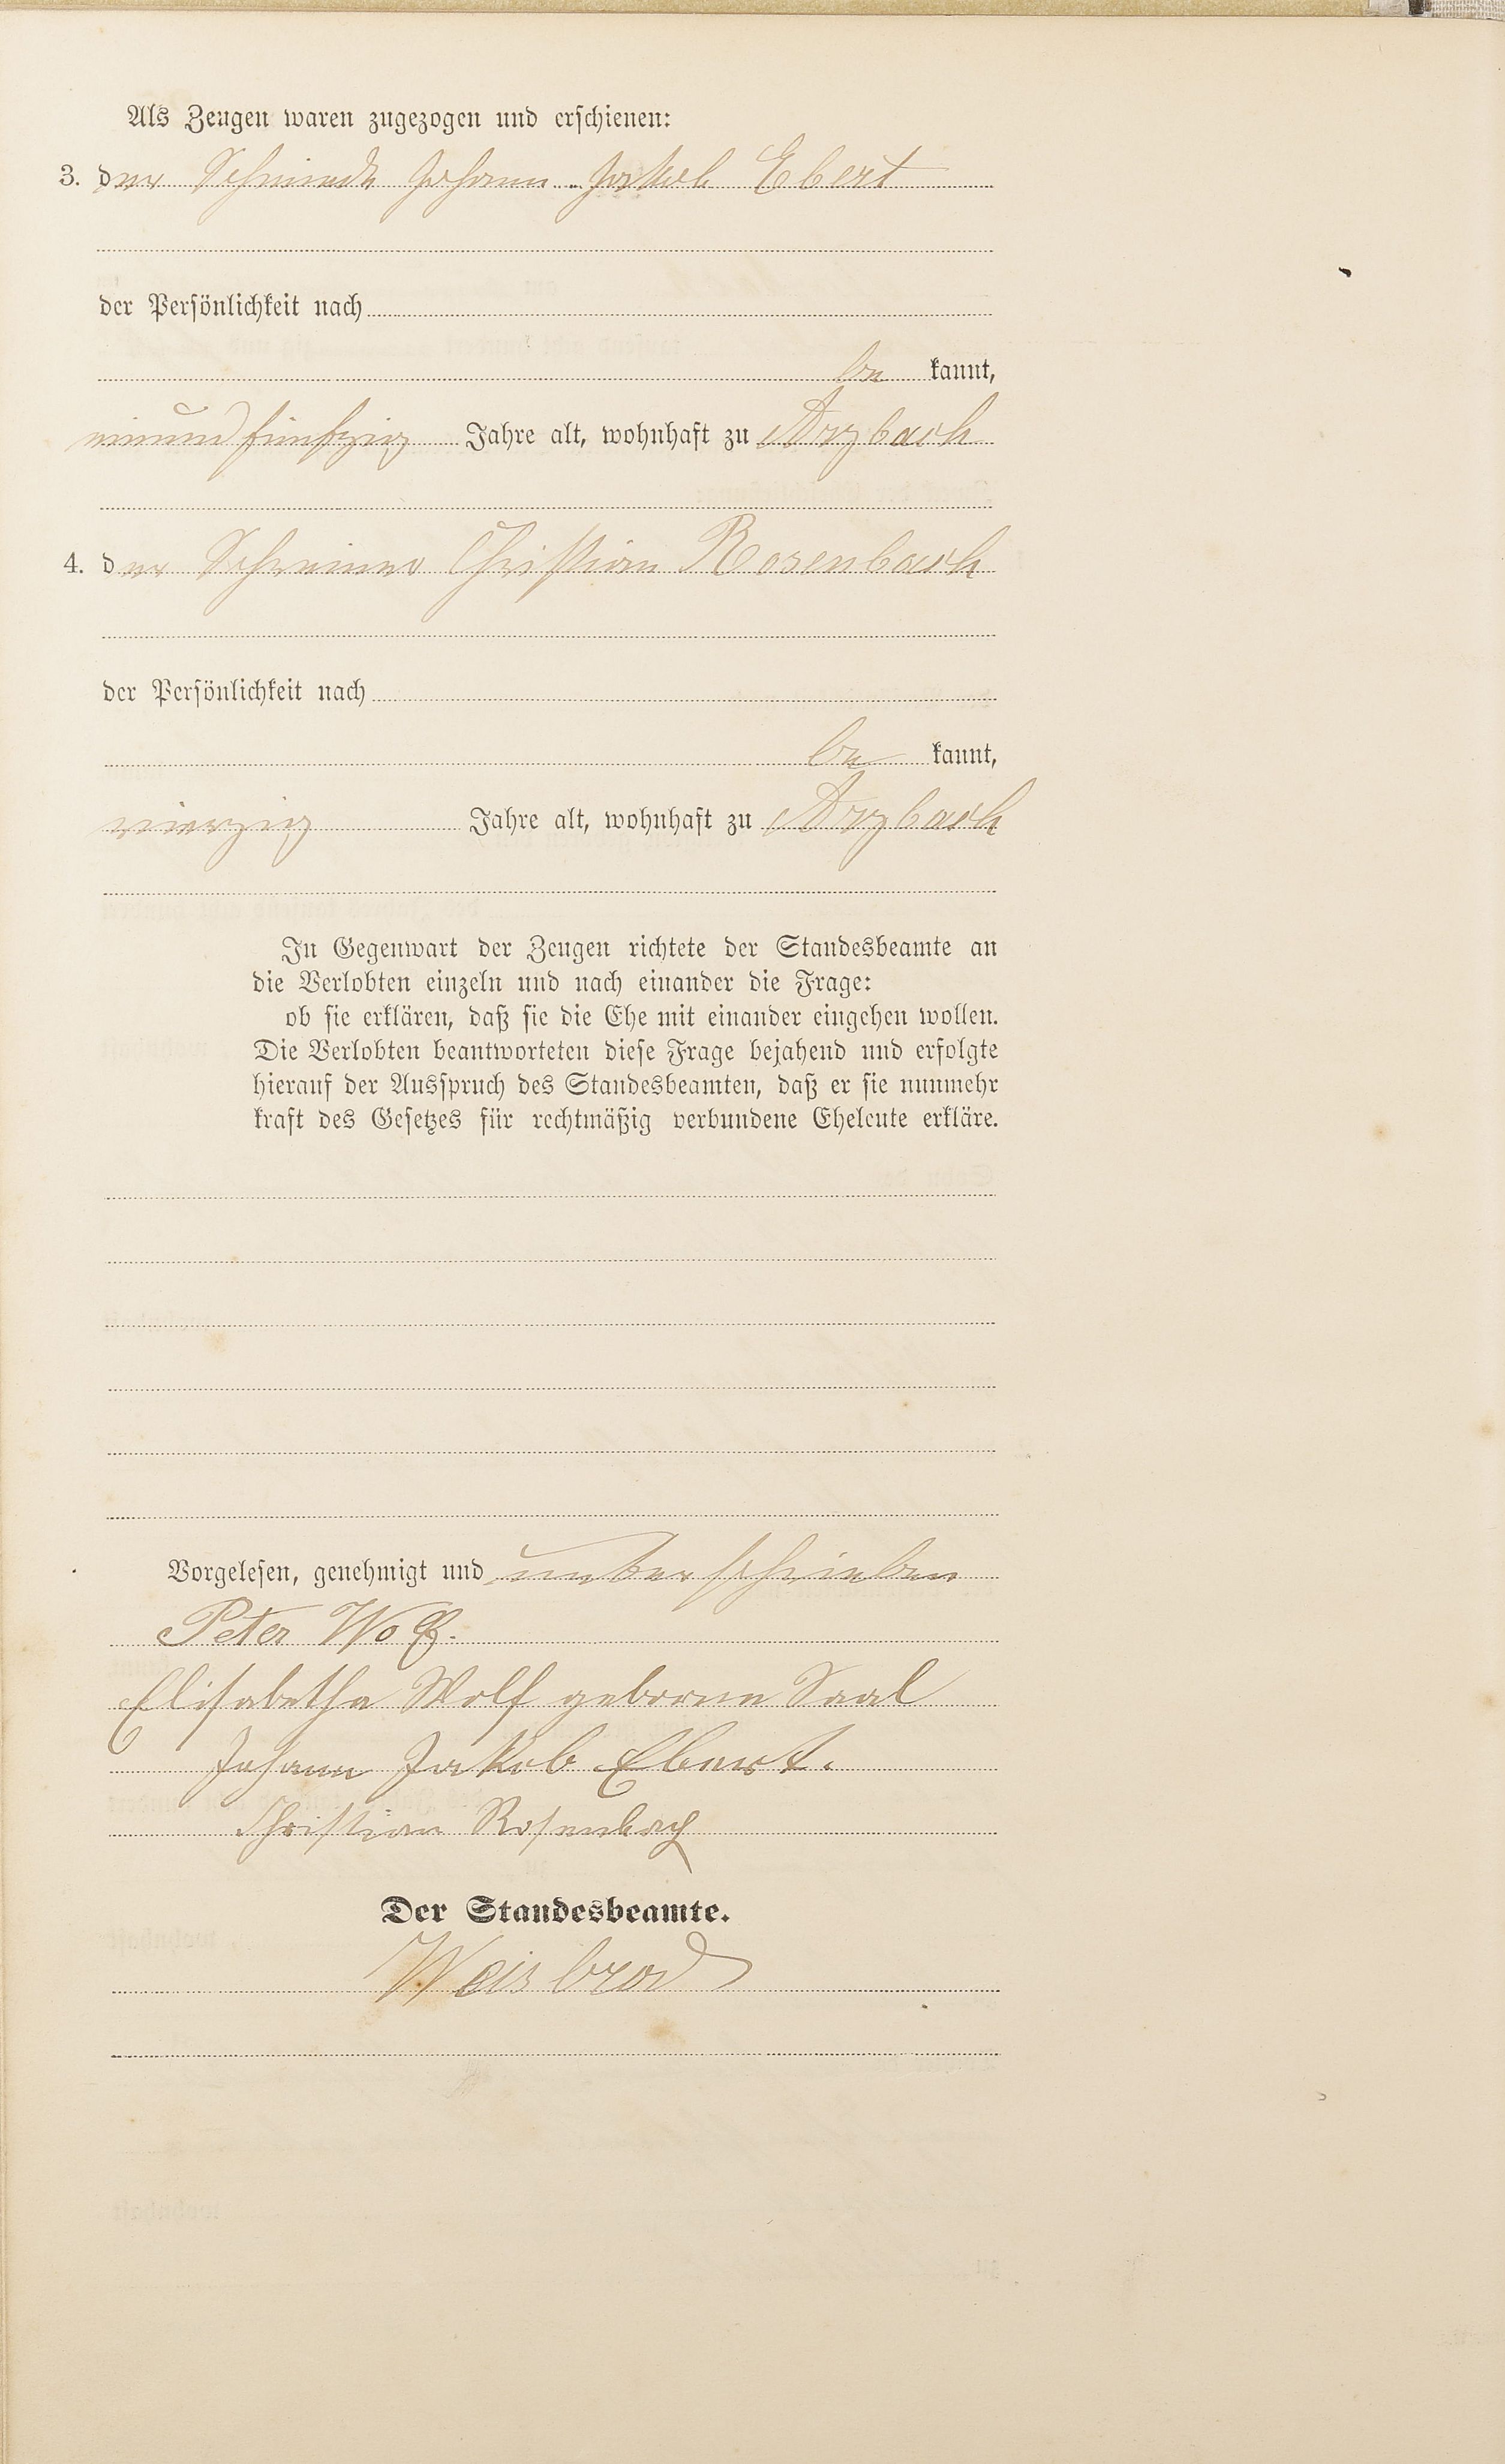 Als Zeugen waren zugezogen und erschienen:
3. der Schmiedt Johann Jakob Ebert
der Persönlichkeit nach
be kannt,
einundfünfzig Jahre alt, wohnhaft zu Arzbach
4. der Schreiner Christian Rosenbach
der Persönlichkeit nach
be kannt,
vierzig Jahre alt, wohnhaft zu Arzbach
In Gegenwart der Zeugen richtete der Standesbeamte an
die Verlobten einzeln und nach einander die Frage:
ob sie erklären, daß sie die Ehe mit einander eingehen wollen.
Die Verlobten beantworteten diese Frage bejahend und erfolgte
hierauf der Ausspruch des Standesbeamten, daß er sie nunmehr
kraft des Gesetzes für rechtmäßig verbundene Eheleute erkläre.
Vorgelesen, genehmigt und unterschrieben
Peter Wolf.
Elisabetha Wolf geborene Saal
Johann Jakob Ebert.
Christian Rosenbach
Der Standesbeamte.
Weisbrod